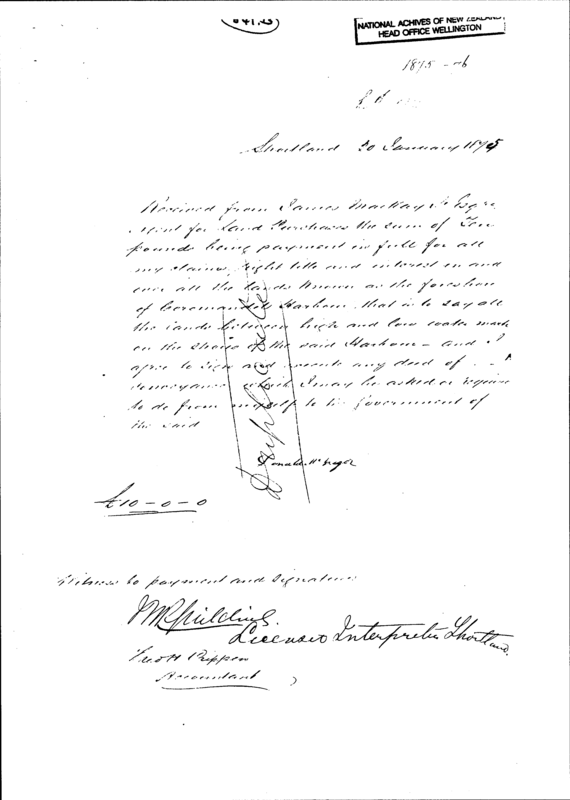 NATIONAL ACHIVES OF NEW ZEALAND
HEAD OFFICE WELLINGTON
1875
Shortland 30 January 1875
Received from James Mackay Jr Esqre
Agent for Land Purchases the sum of Ten
pounds being payment in full for all
my claims, right title and interest in and
over all the lands known as the foreshore
of Coromandel Harbour that is to say all
the lands between high and low water mark
on the shores of the said Harbour - and I
agree to sign and execute any deed of
conveyance which I may be asked or required
to do from myself to the Government of
the said
Duplicate
Donald McGregor
£10-0-0
Witness to payment and signature
Licensed Interpreter Shortland.
Accountant